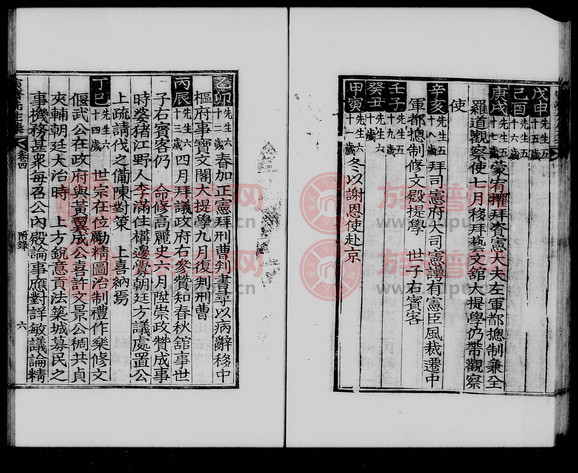 戊申 先生五十五歲
己酉 先生五十六歲
庚戌 先生五十七歲 蒙宥擢拜資憲大夫左軍都摠制兼全
羅道觀察使七月移拜藝文館大提學仍帶觀察
使
辛亥 先生五十八歲 拜司憲府大司憲謹有憲臣風裁遷中
軍都摠制修文殿提學 世子右賓客
壬子 先生五十九歲
癸丑 先生六十歲
甲寅 先生六十一歲 冬以謝恩使赴京
乙卯 先生六十二歲 春加正憲拜刑曹判書尋以病辭移中
樞府事寶文閣大提學九月復判刑曹
丙辰 先生六十三歲 四月拜議政府右參贊知春秋館事世
子右賓客仍 命修高麗史六月陞崇政贊成事
時婆猪江野人李滿住構邊釁朝廷方議處置公
上疏請伐之備陳對策 上喜納焉
丁巳 先生六十四歲 世宗在位勵精圖治制禮作樂修文
偃武公在政府與黃翼成公喜許文景公稠共貞
夾輔朝廷大治時 上方銳意貢法築城募民之
事機務甚衆每召公內殿論事應對詳敏議論精
卷四
附錄
六
族譜网